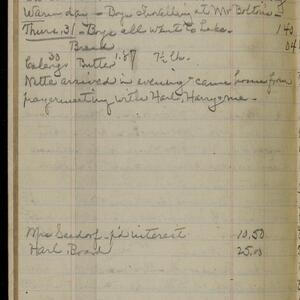 Warm day - Boys travelling at Mr Bolton's
Thurs. 31 - Boys all went to Lake. 1 40
Bread 04
30 Butter 1.87 7½ lb.
Nette arrived in evening came home from
prayermeeting with Harl, Harry & me.
Mrs Seedorf - p'd interest 10.50
Harl, Board 25.00